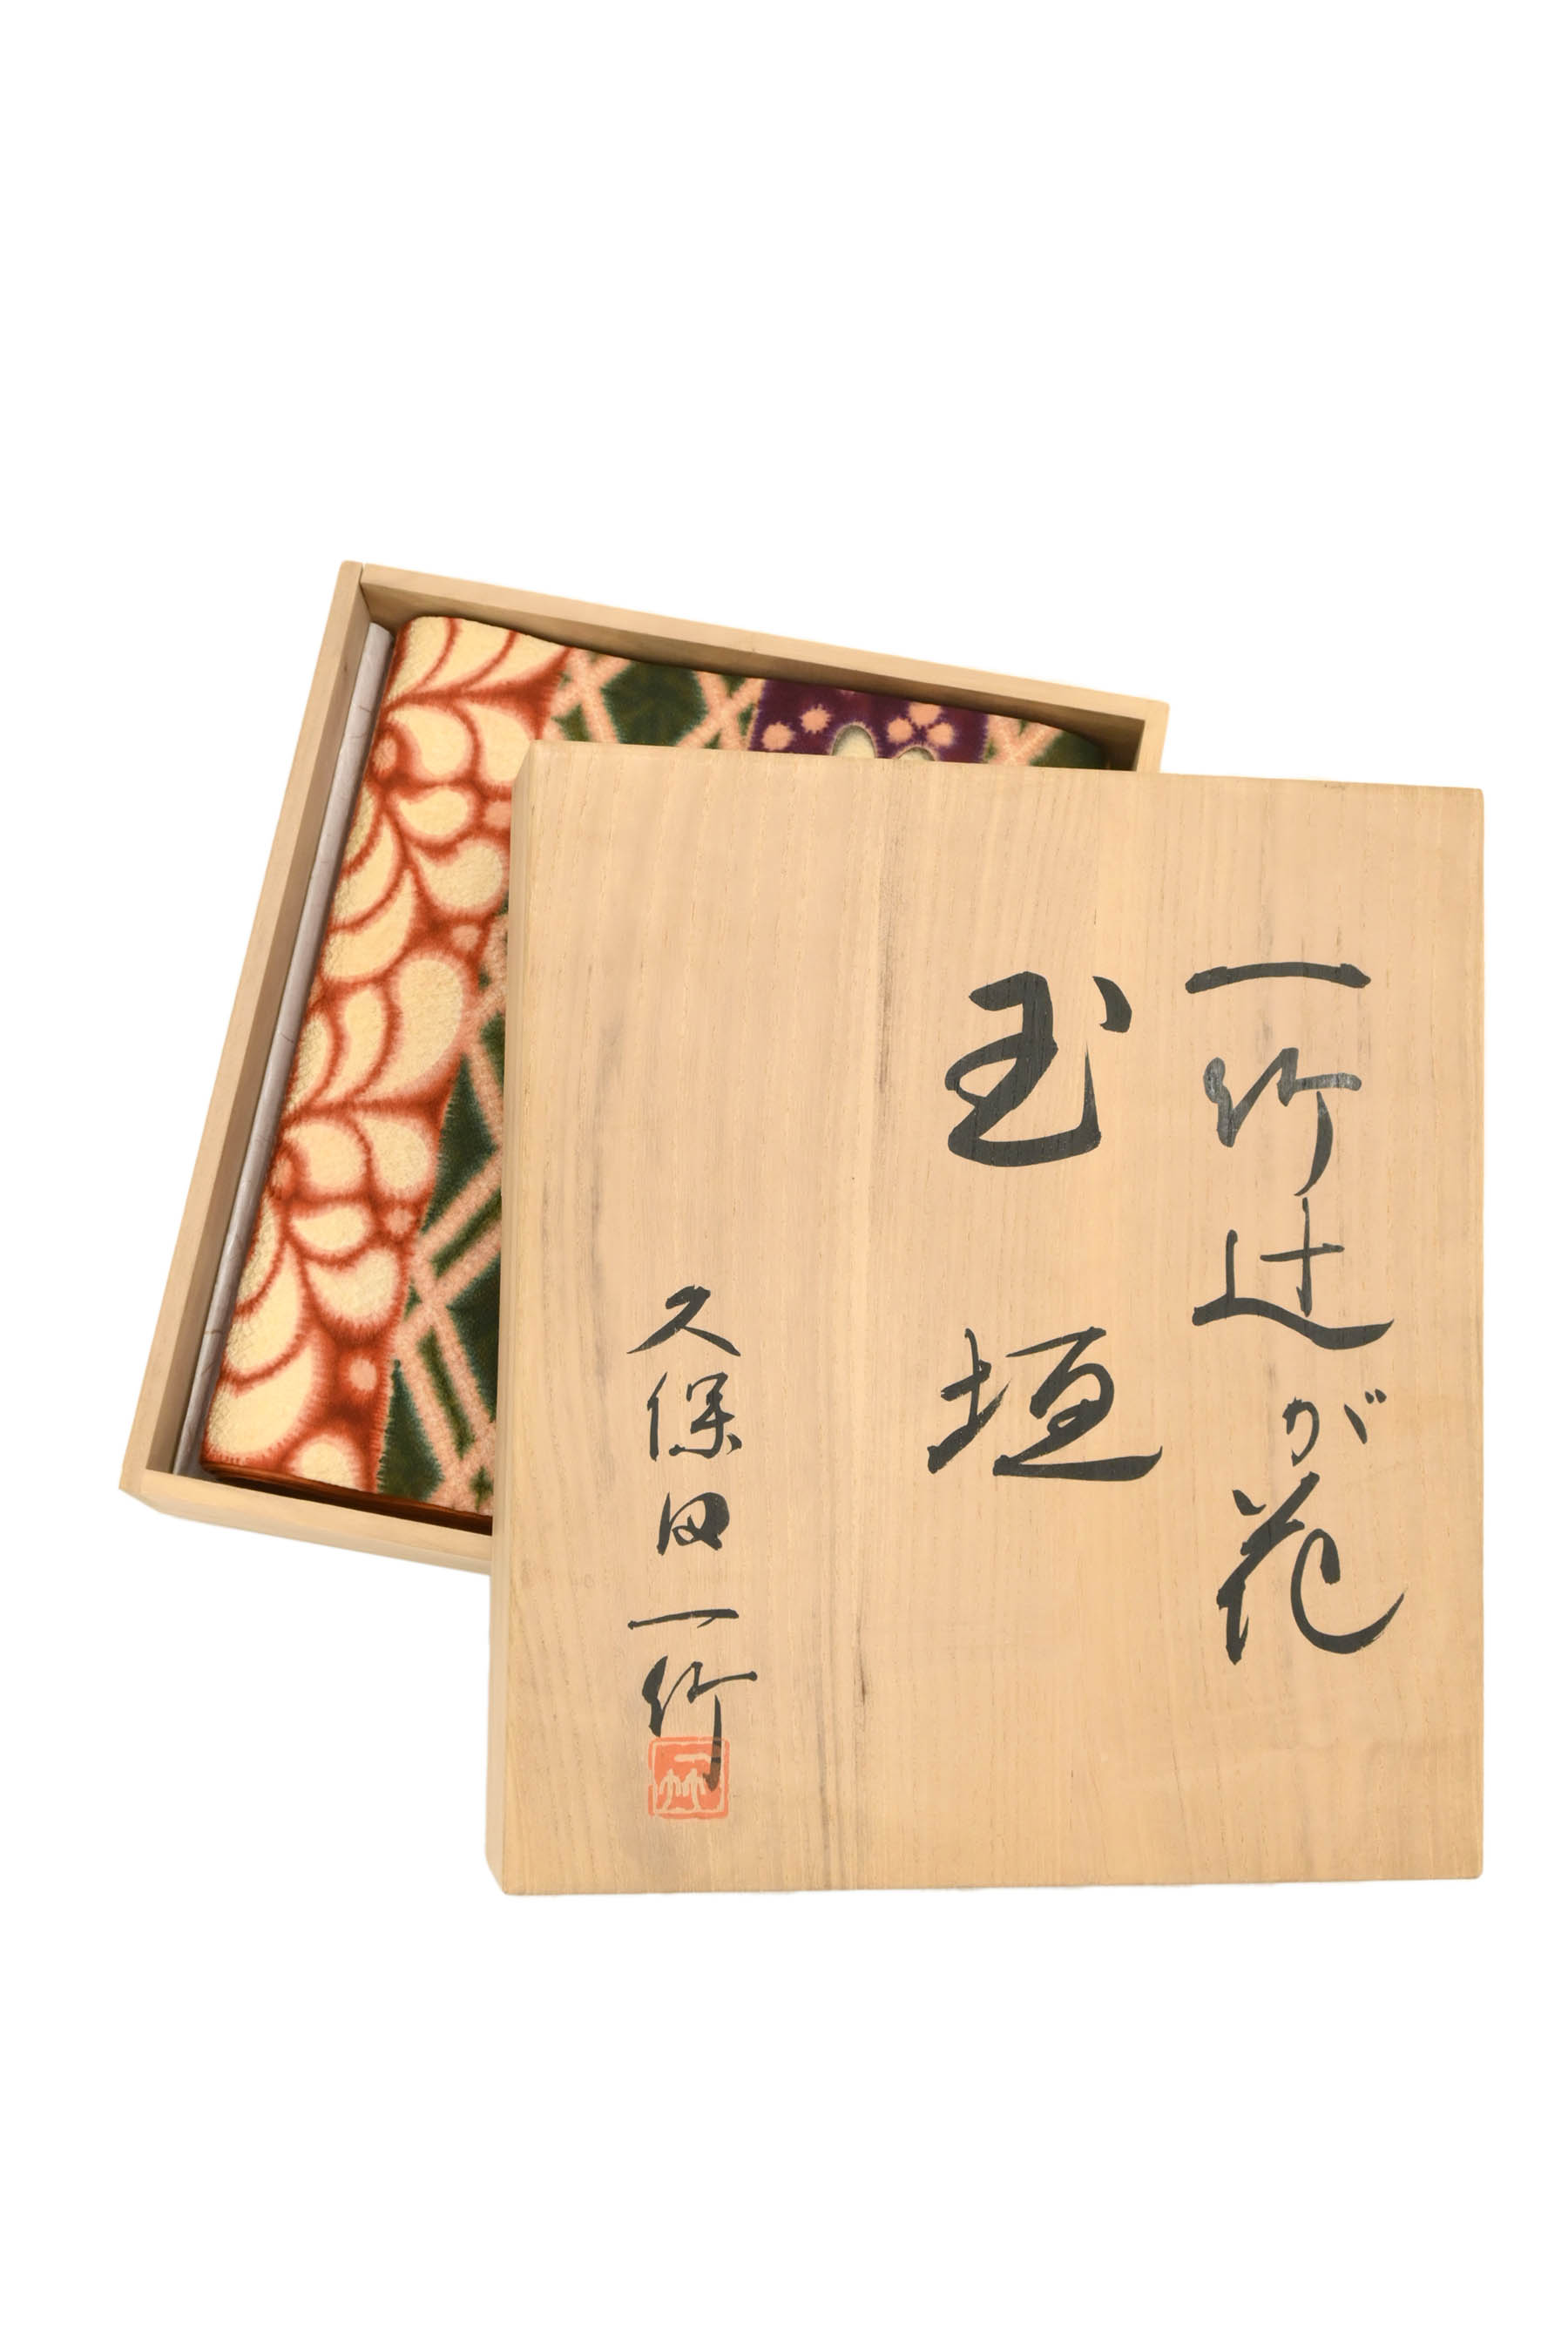 一竹辻が花
玉垣
久保田一竹
一竹